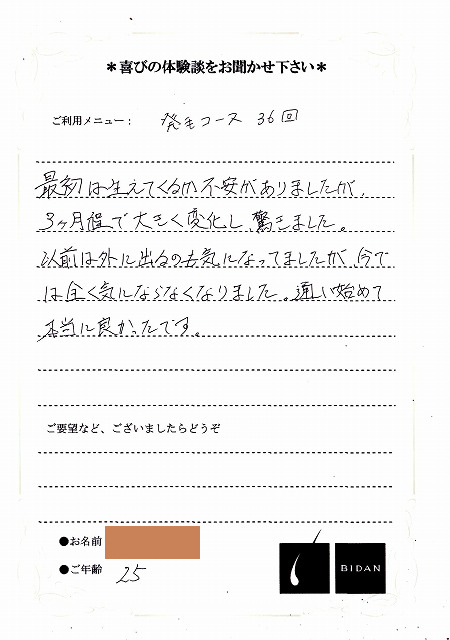 ＊喜びの体験談をお聞かせ下さい＊
ご利用メニュー： 発毛コース 36回
最初は生えてくるか不安がありましたが、
3ヶ月程で大きく変化し、驚きました。
以前は外に出るのも気になってましたが、今で
は全く気にならなくなりました。通い始めて
本当に良かったです。
ご要望など、ございましたらどうぞ
●お名前
●ご年齢 25
BIDAN